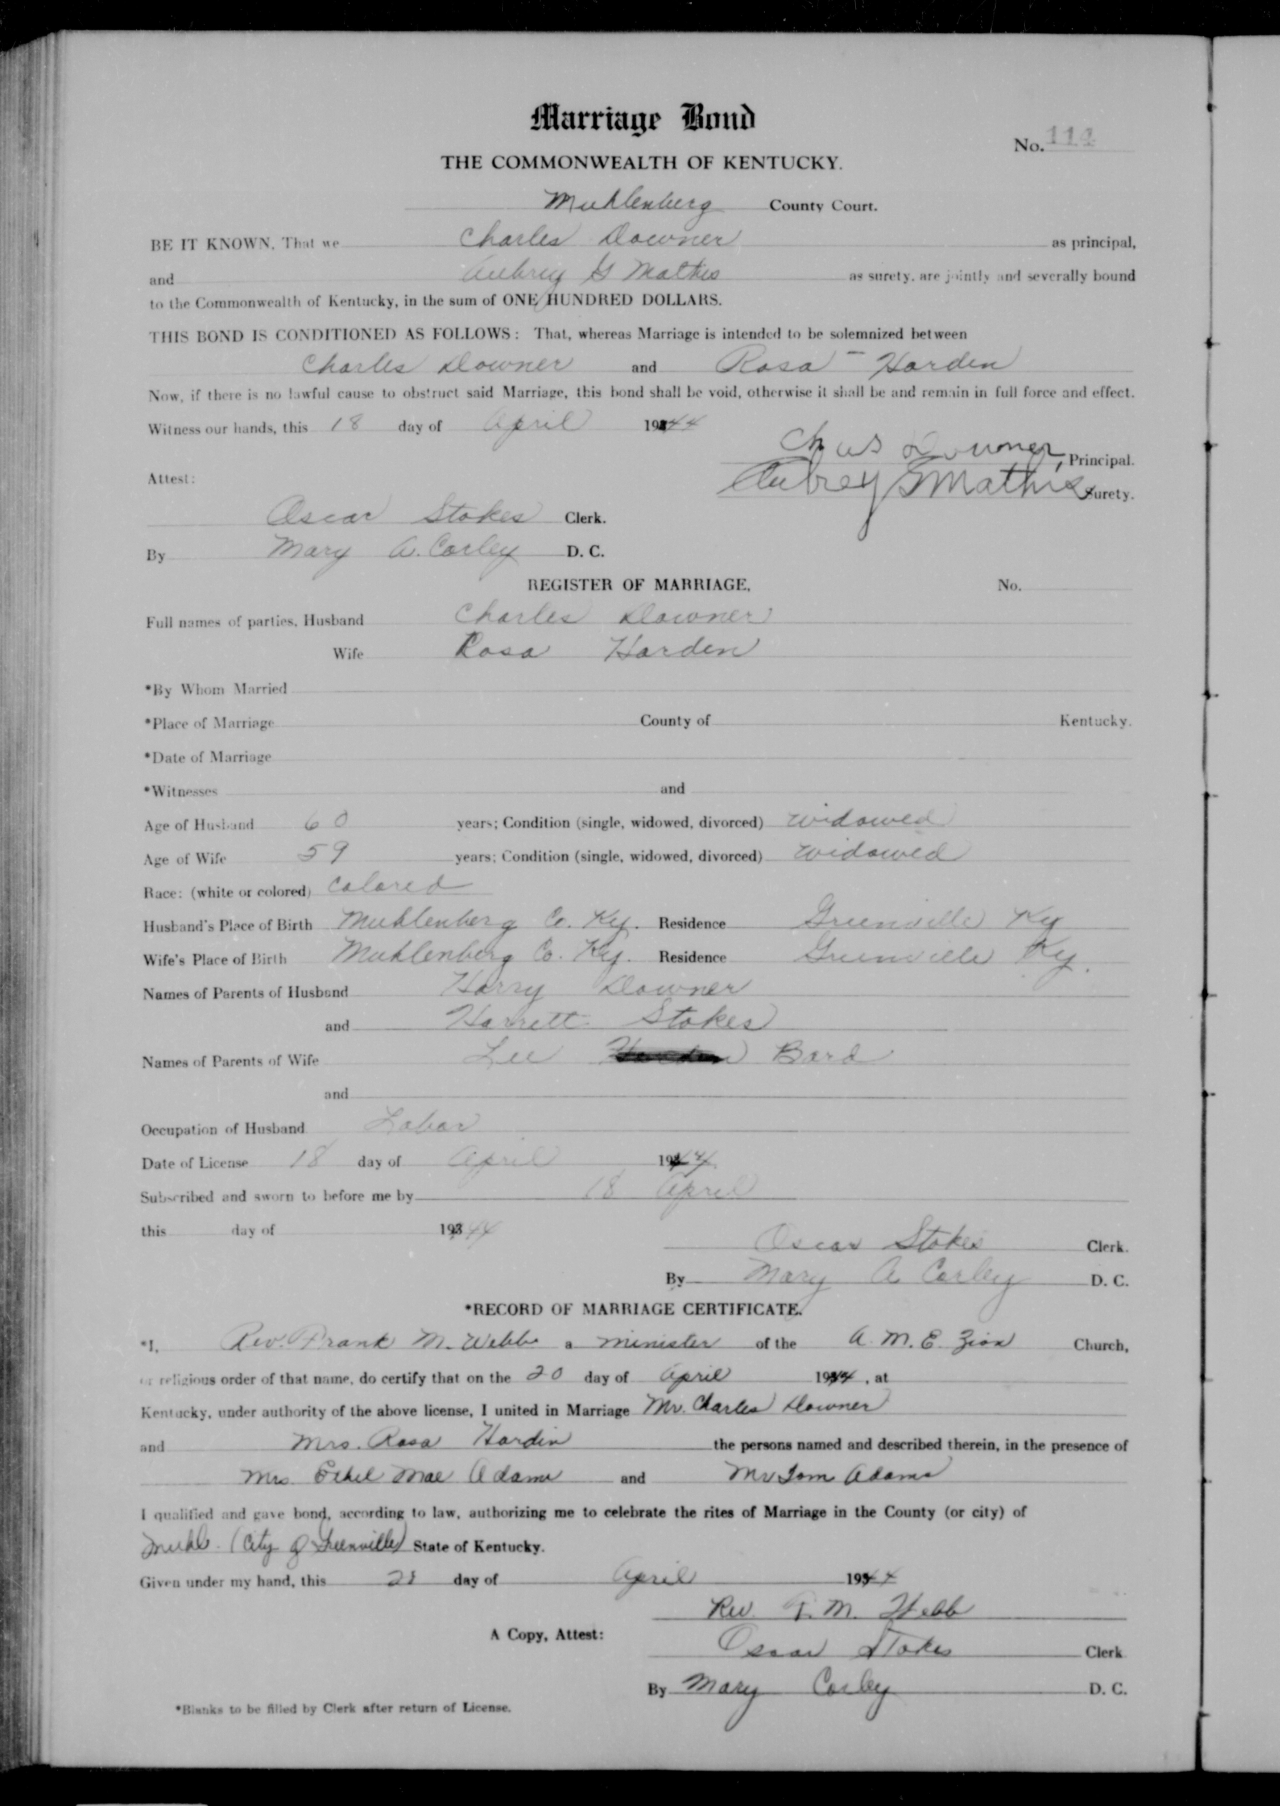 Marriage Bond
No. 114
THE COMMONWEALTH OF KENTUCKY.
Muhlenberg County Court.
BE IT KNOWN, That we Charles Downer as principal,
and Aubrey G Mathis as surety, are jointly and severally bound
to the Commonwealth of Kentucky, in the sum of ONE HUNDRED DOLLARS.
THIS BOND IS CONDITIONED AS FOLLOWS: That, whereas Marriage is intended to be solemnized between
Charles Downer and Rosa - Harden
Now, if there is no lawful cause to obstruct said Marriage, this bond shall be void, otherwise it shall be and remain in full force and effect.
Witness our hands, this 18 day of April 1944
Chas Downer, Principal.
Attest:
Aubrey G Mathis Surety.
Oscar Stokes Clerk.
By Mary A. Corley D. C.
REGISTER OF MARRIAGE, No.
Full names of parties, Husband Charles Downer
Wife Rosa Harden
*By Whom Married
*Place of Marriage County of Kentucky.
*Date of Marriage
*Witnesses and
Age of Husband 60 years; Condition (single, widowed, divorced) widowed
Age of Wife 59 years; Condition (single, widowed, divorced) widowed
Race: (white or colored) Colored
Husband's Place of Birth Muhlenberg Co. Ky. Residence Greenville Ky
Wife's Place of Birth Muhlenberg Co. Ky. Residence Greenville Ky.
Names of Parents of Husband Harry Downer
and Harrett Stokes
Names of Parents of Wife Lee Bard
and
Occupation of Husband Labor
Date of License 18 day of April 1944
Subscribed and sworn to before me by 18 April
this day of 1944
Oscar Stokes Clerk.
By Mary A Corley D. C.
*RECORD OF MARRIAGE CERTIFICATE.
*I, Rev. Frank M. Webb a minister of the A. M. E. Zion Church,
or religious order of that name, do certify that on the 20 day of April 1944, at
Kentucky, under authority of the above license, I united in Marriage Mr. Charles Downer
and Mrs. Rosa Hardin the persons named and described therein, in the presence of
Mrs Ethel Mae Adams and Mr Tom Adams
I qualified and gave bond, according to law, authorizing me to celebrate the rites of Marriage in the County (or city) of
Muhl. (City of Greenville) State of Kentucky.
Given under my hand, this day of April 1944
Rev. F. M. Webb
A Copy, Attest:
Oscar Stokes Clerk
By Mary Corley D. C.
*Blanks to be filled by Clerk after return of License.